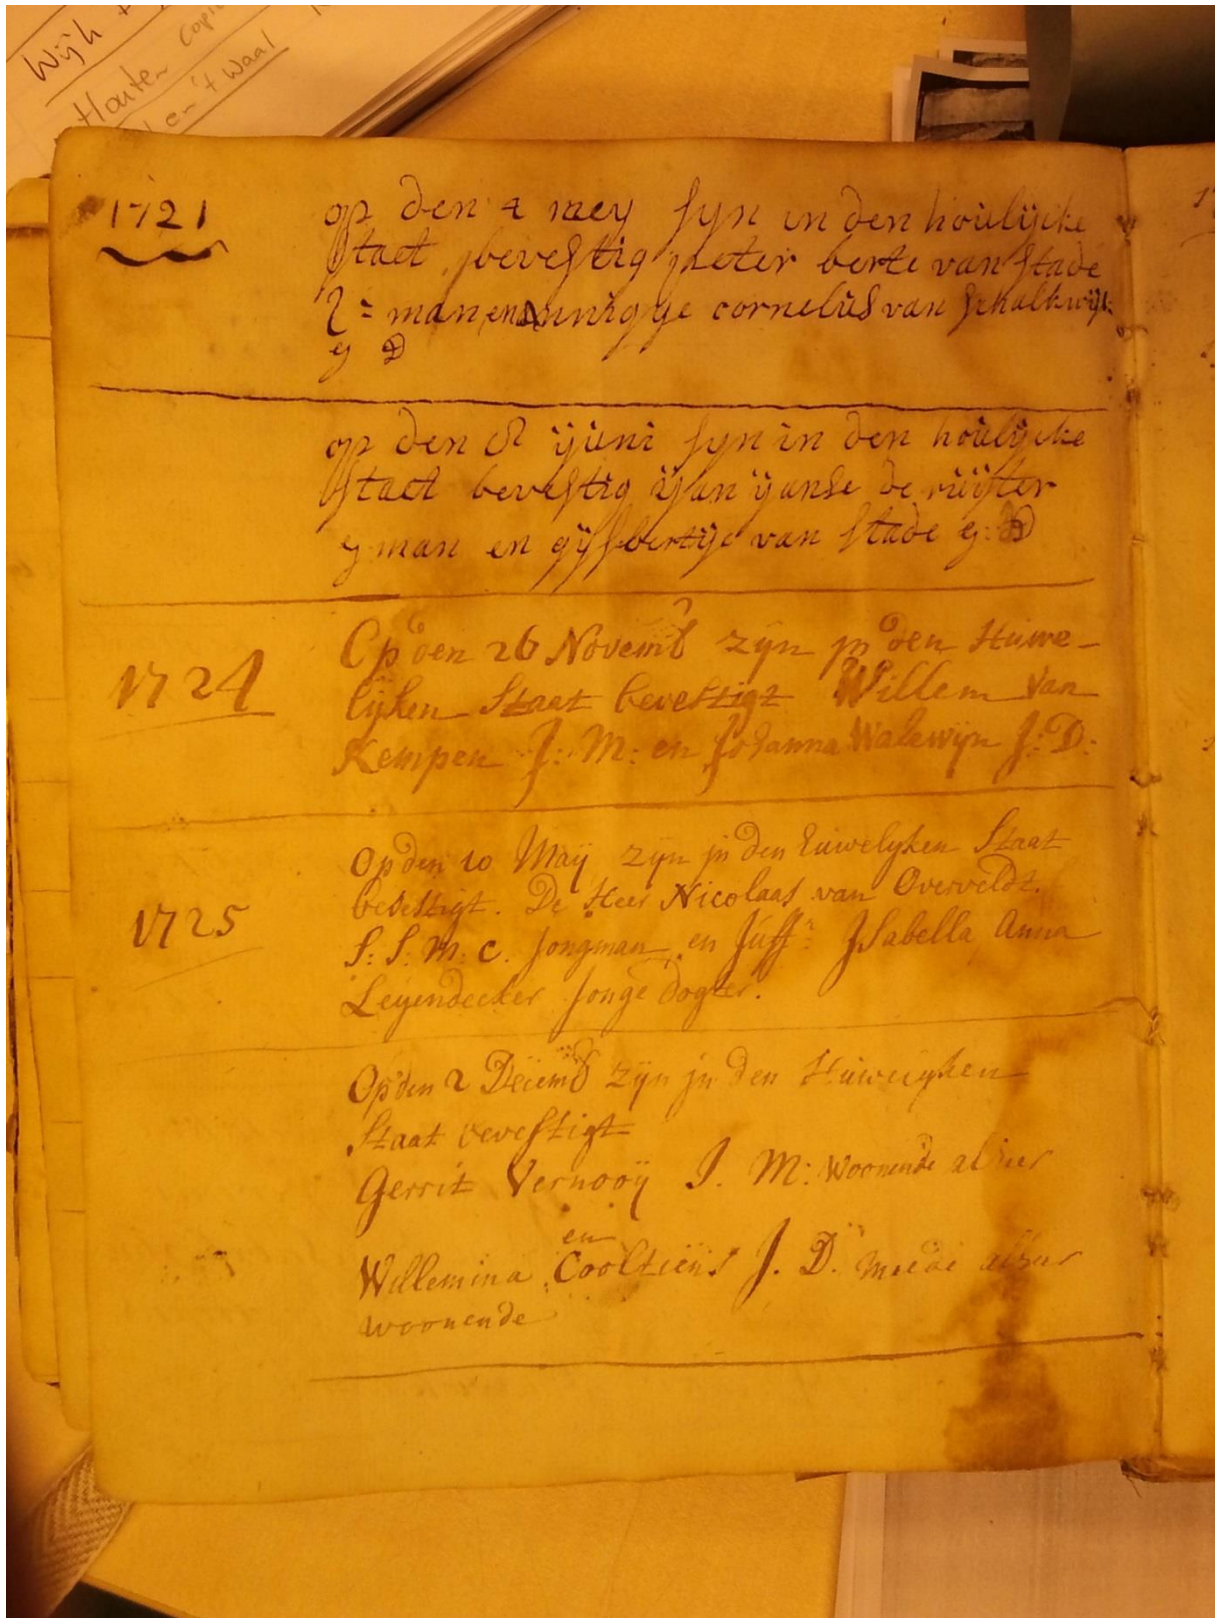 Wijk
Houten Copie
en 't Waal
1721
op den 4 mey syn in den houlijcke
staet bevestig pieter berte van stade
J = man en Annigye cornelus van schalkwijk
g D
op den 8 ijuni syn in den houlijcke
staet bevestig ijan ijanse de ruijter
g man en gijsbertije van stade g: D
1724
Op den 26 Novemb zijn jn den Huwe-
lijken Staat bevestigt Willem van
Kempen J: M: en Johanna Walewijn J: D:
1725
Op den 10 Maij zijn jn den huwelyken Staat
bevestigt. De Heer Nicolaas van Overveldt.
S: S: M: C. Jongman en Juffr: Jsabella Anna
Leyendecker Jonge dogter.
Op den 2 Decemb zijn jn den Huwelijken
Staat bevestigt
Gerrit Vernooij J. M: woonende alhier
en
Willemina Cooltiens J. D. meede alhier
woonende